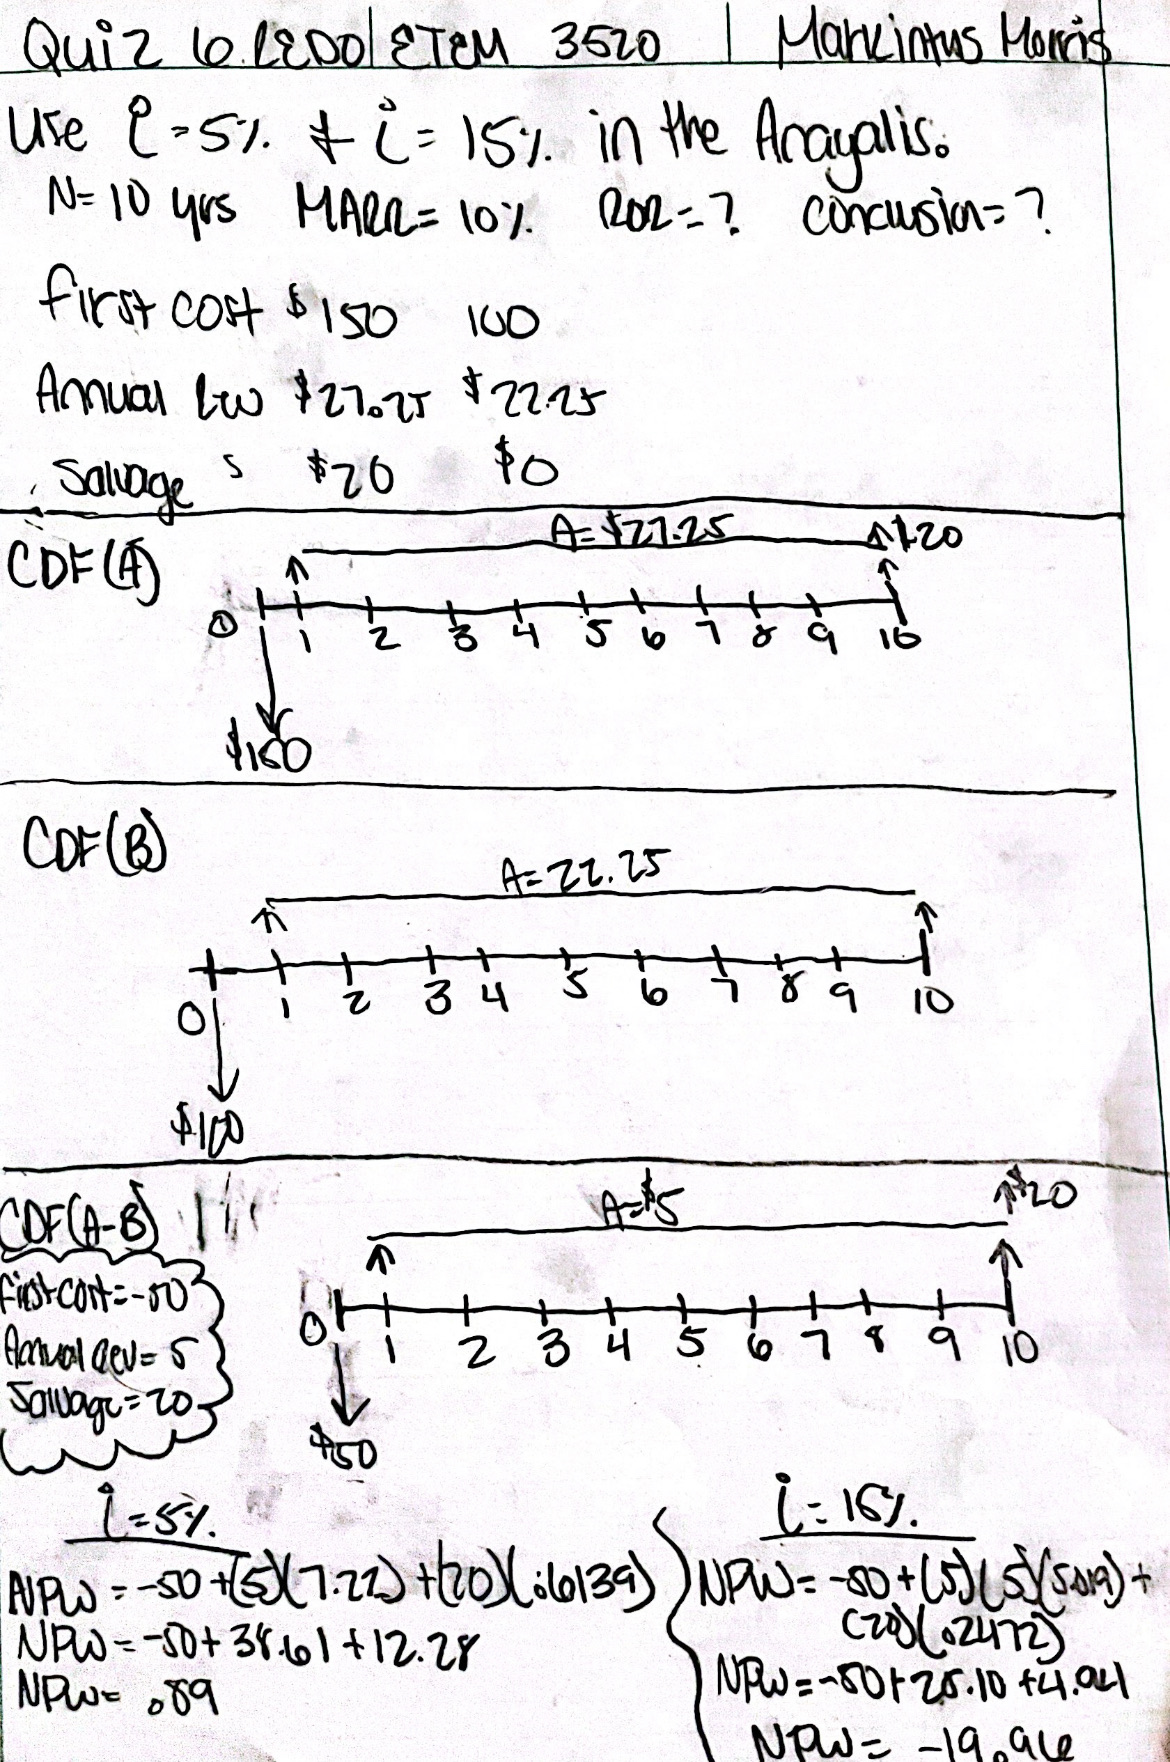 Quiz 6 REDO | ETEM 3520 | Markintus Morris
Use i=5% & i=15% in the Anayalis.
N=10 yrs MARR=10% ROR=? conclusion=?
first cost $150 100
Annual Rev $27.25 $22.25
Salvage s $20 $0
CDF(A) A=$27.25 $20
0 1 2 3 4 5 6 7 8 9 10
$150
CDF(B)
A=22.25
0 1 2 3 4 5 6 7 8 9 10
$100
CDF(A-B) A=$5 $20
first cost=-50
Annual rev=5
Salvage=20
0 1 2 3 4 5 6 7 8 9 10
$50
i=5%
NPW=-50+(5)(7.22)+(20)(.6139)
NPW=-50+38.61+12.28
NPW=.89
i=15%
NPW=-50+(5)(5)(5.019)+
(20)(.2472)
NPW=-50+25.10+4.941
NPW=-19.96